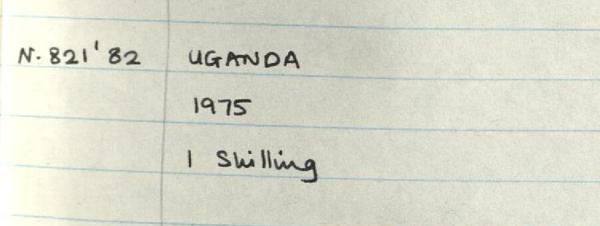 N. 821'82 UGANDA
1975
1 Shilling